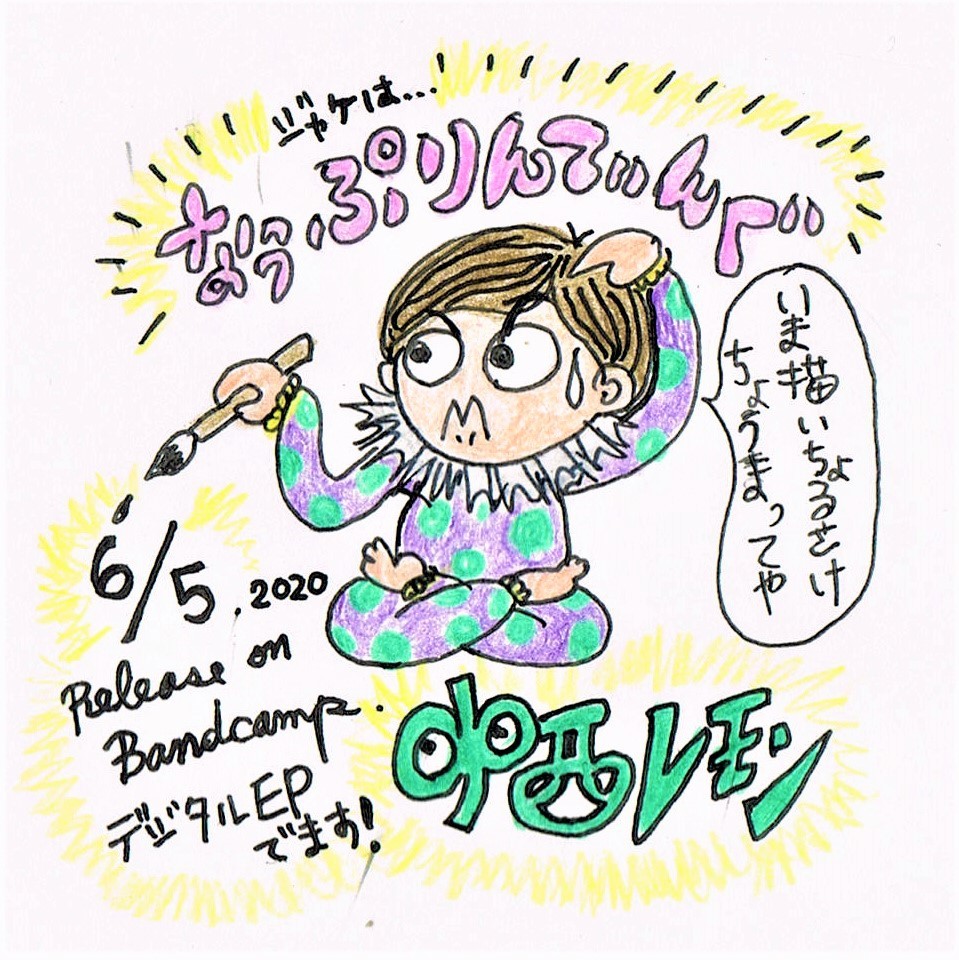 ジャケは...
なうぷりんてぃんぐ
いま描いちょるさけ
ちょうまってや
6/5, 2020
Release on
Bandcamp.
デジタルEP
でます!
中西レモン